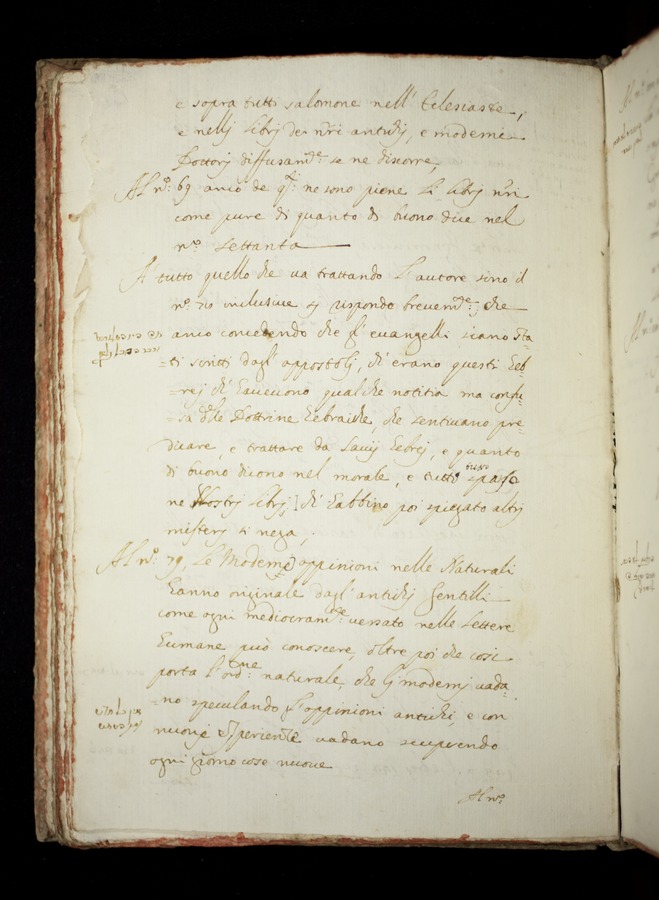 e sopra tutti salomone nell' Eclesiaste,
e nellj librj de nr̃i antichj, e moderni
Dottorj diffusam.te se ne discorre,
Al n.o: 69 anco de q.ti ne sono piene li librj nr̃i
come pure di quanto di buono dice nel
n.o settanta
A tutto quello che va trattando l'autore sino il
n.o 78 inclusive si rispondo brevem.te: che
anco concedendo che gl' evangelli siano sta-
=ti scritti dagl' appostolj, ch' erano questi Eeb-
=rej ch' havevono qualche notitia ma confu-
=sa delle Dottrine hebraiche, che sentivano pre-
dicare, e trattare da savij hebrej, e quanto
di buono dicono nel morale, e tutto preso
ne Nostrj librj, ch' habbino poi spiegato altrj
misterj si nega,
Al n.o: 79, Le Moderne oppinioni nelle Naturali
hanno originale dagl' antichj Gentilli
come ogni mediocram.te versato nelle Lettere
humane può conoscere, oltre poi che cosi
porta l'ord.ne: naturale, che lj modernj vada-
=no speculando l'oppinioni antichi, e con
nuove esperienze vadano scuprendo
ogni giorno cose nuove
Al n.o